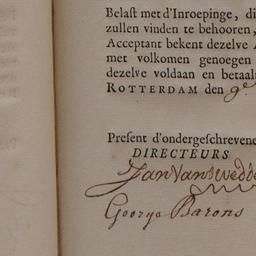 Belast met d'Inroepinge, di
zullen vinden te behooren,
Acceptant bekent dezelve A
met volkomen genoegen
dezelve voldaan en betaal
ROTTERDAM den 9e
Present d'ondergeschrevene
DIRECTEURS
Jan Van
George Barons